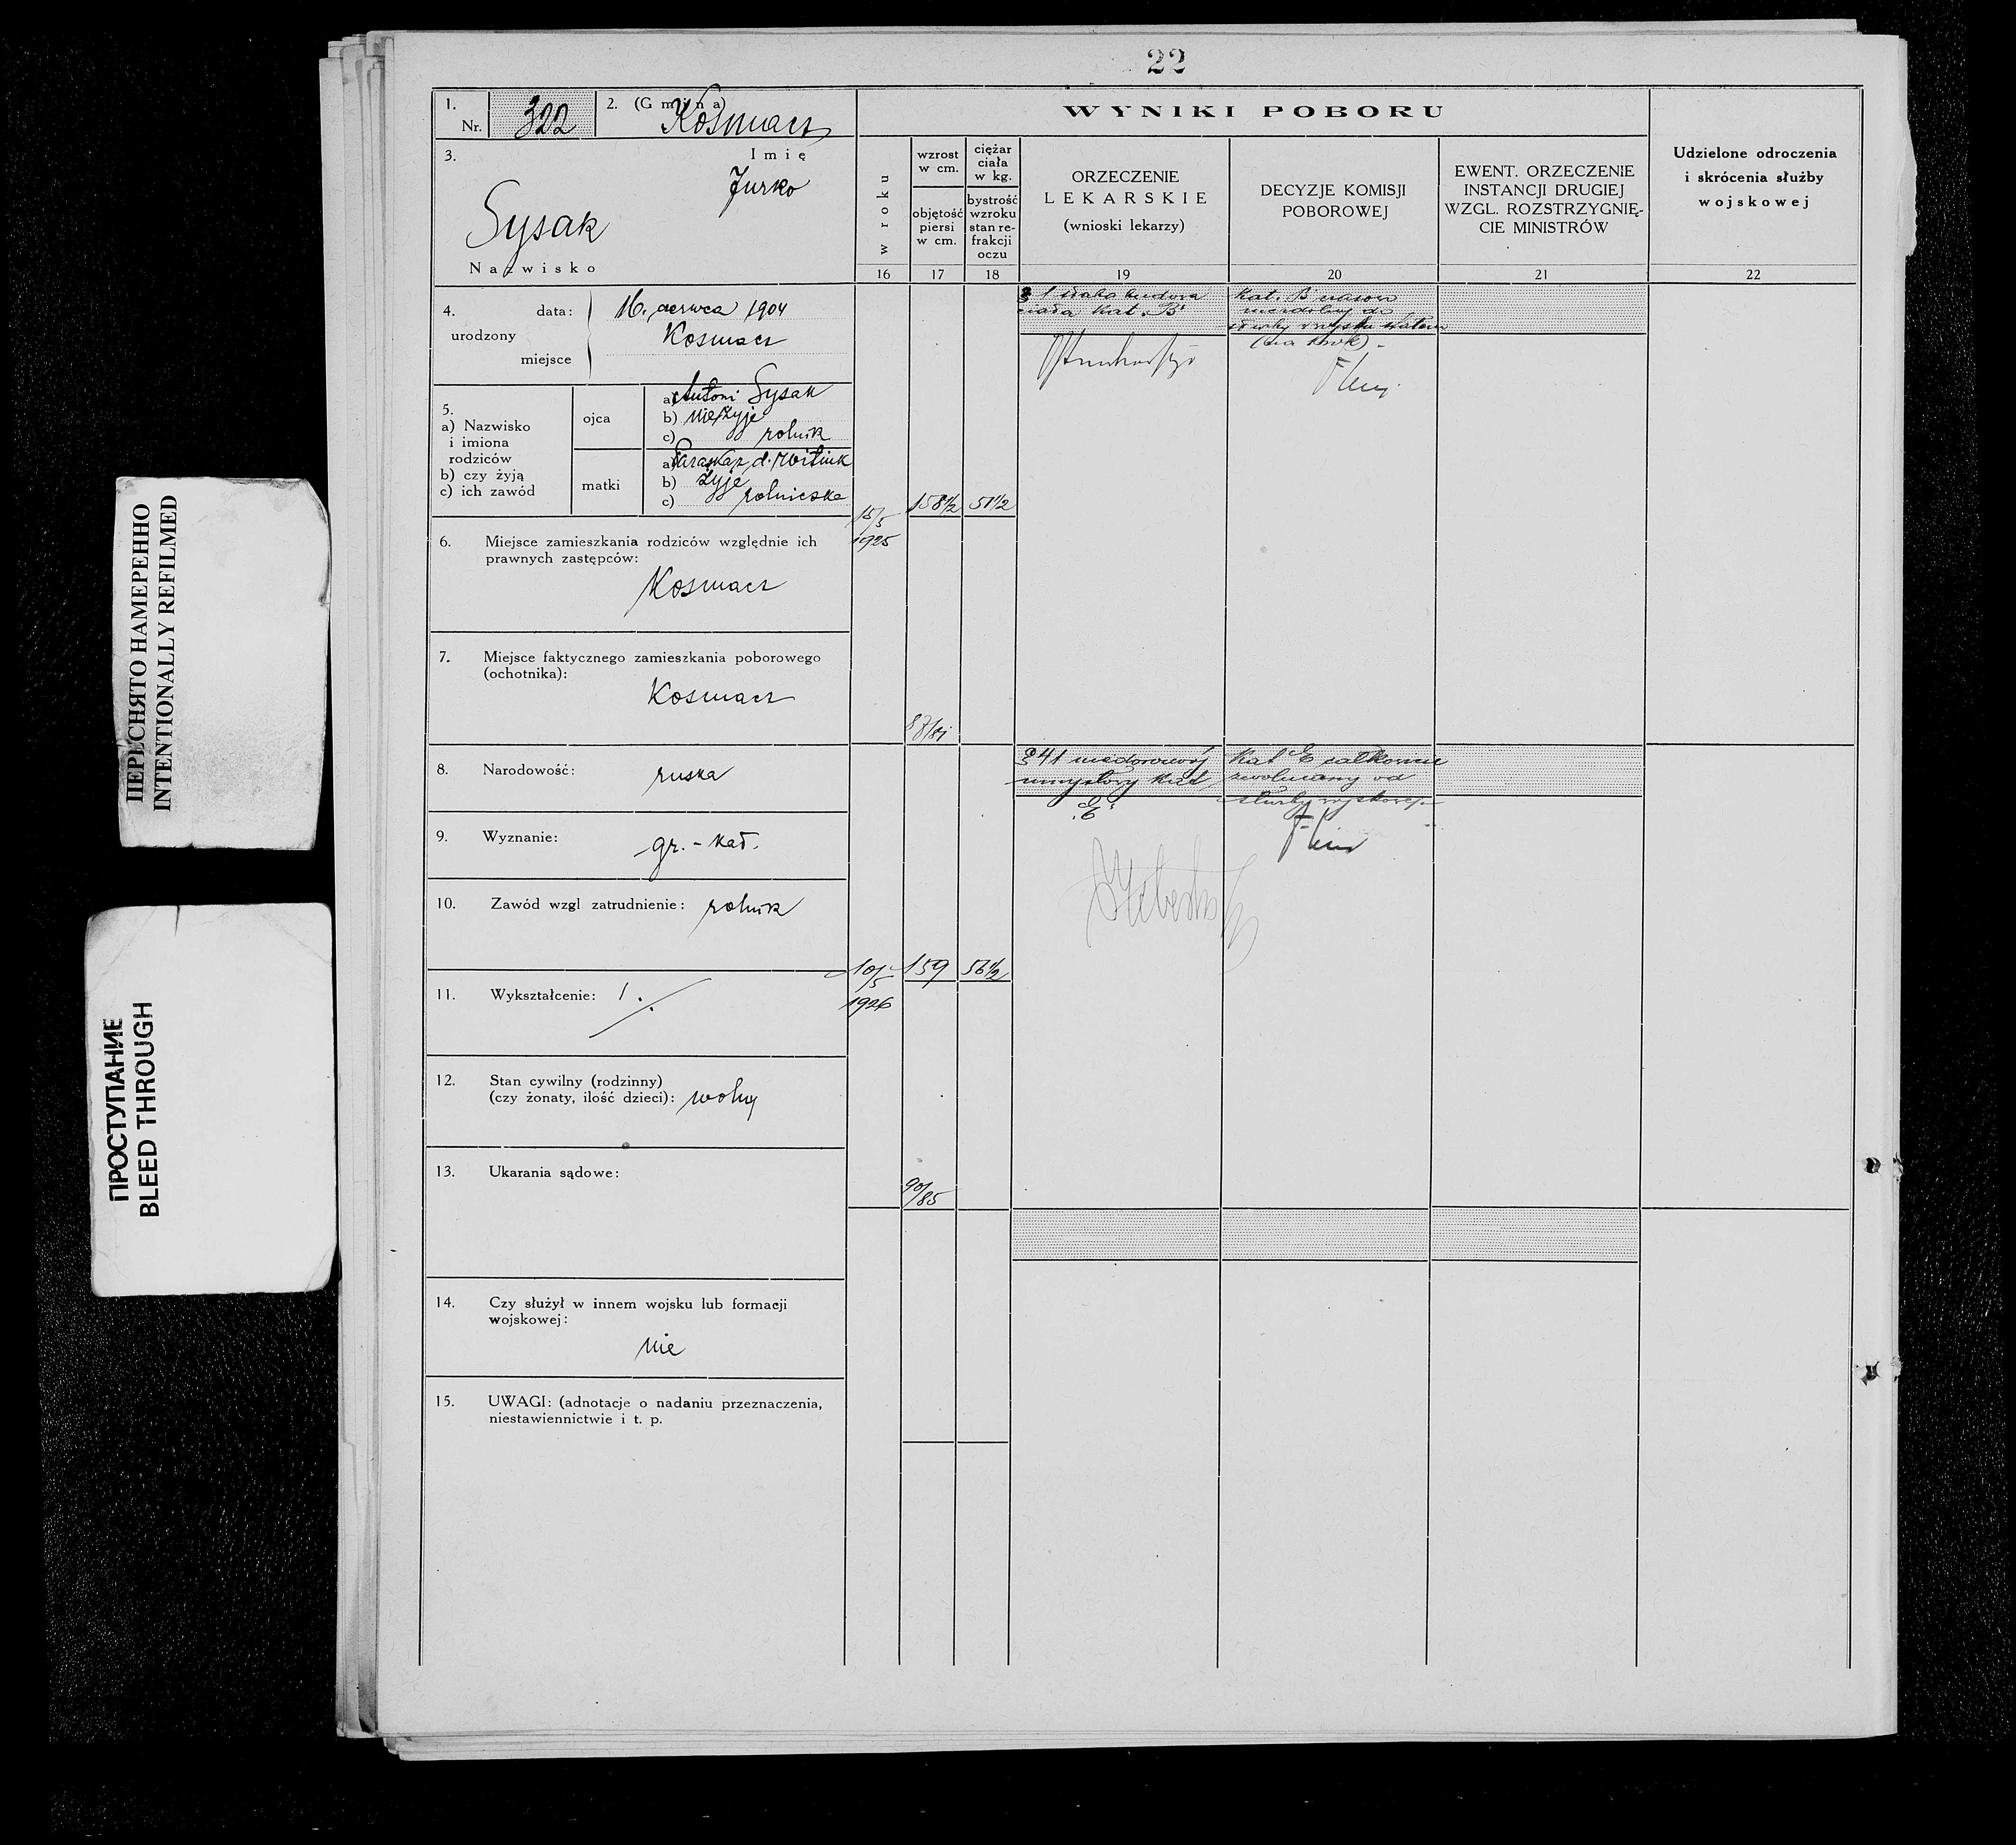 22
1. Nr. 322
2. (Gmina) Kosmacz
3. Imię
Jurko
Sysak
Nazwisko
4. urodzony
data: 16. czerwca 1904
miejsce Kosmacz
5.
a) Nazwisko
i imiona
rodziców
b) czy żyją
c) ich zawód
ojca
a) Antoni Sysak
b) nie żyje
c) rolnik
matki
a) Paraska z d.
b) żyje
c) rolniczka
6. Miejsce zamieszkania rodziców względnie ich
prawnych zastępców:
Kosmacz
7. Miejsce faktycznego zamieszkania poborowego
(ochotnika):
Kosmacz
8. Narodowość: ruska
9. Wyznanie: gr.-kat.
10. Zawód wzgl zatrudnienie: rolnik
11. Wykształcenie:
12. Stan cywilny (rodzinny)
(czy żonaty, ilość dzieci): wolny
13. Ukarania sądowe:
14. Czy służył w innem wojsku lub formacji
wojskowej:
nie
15. UWAGI: (adnotacje o nadaniu przeznaczenia,
niestawiennictwie i t. p.
WYNIKI POBORU
w roku
16
wzrost
w cm.
objętość
piersi
w cm.
17
ciężar
ciała
w kg.
bystrość
wzroku
stan re-
frakcji
oczu
18
ORZECZENIE
LEKARSKIE
(wnioski lekarzy)
19
DECYZJE KOMISJI
POBOROWEJ
20
EWENT. ORZECZENIE
INSTANCJI DRUGIEJ
WZGL. ROZSTRZYGNIĘ-
CIE MINISTRÓW
21
Udzielone odroczenia
i skrócenia służby
wojskowej
22
15/5
1925
158 1/2
51 1/2
§ 1 słaba budowa
ciała kat. "B"
Kat. B czasowo
niezdolny do
(na rok)
10/5
1926
159
56 1/2
90/85
§ 41 niedorozwój
umysłowy kat.
"E"
Kat E całkowicie
zwolniony od
służby wojskowej
ПЕРЕСНЯТО НАМЕРЕННО
INTENTIONALLY REFILMED
ПРОСТУПАНИЕ
BLEED THROUGH